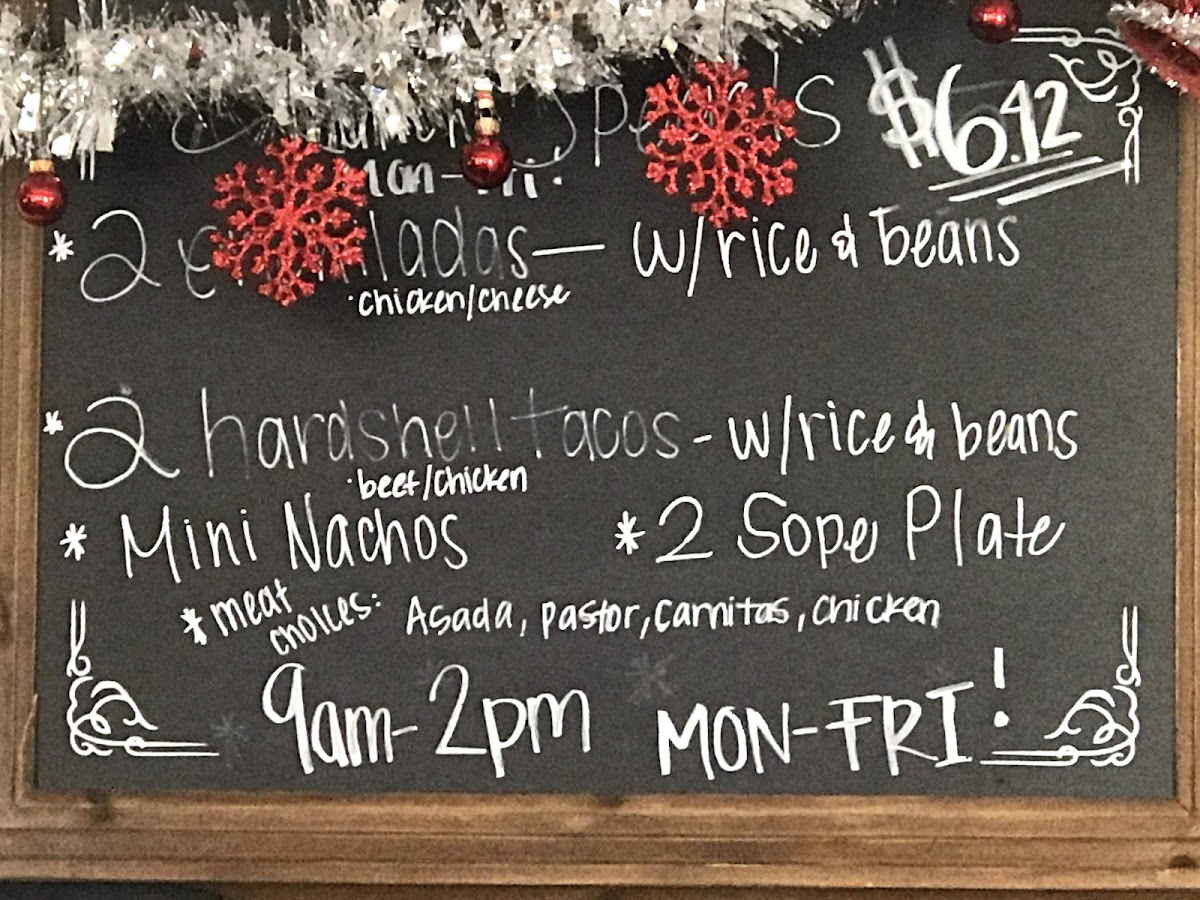 $6.42
* 2 — w/rice & beans
·chicken/cheese
* 2 hardshell tacos - w/rice & beans
·beef/chicken
* Mini Nachos
* 2 Sope Plate
* meat choices: Asada, pastor, carnitas, chicken
9am-2pm MON-FRI!